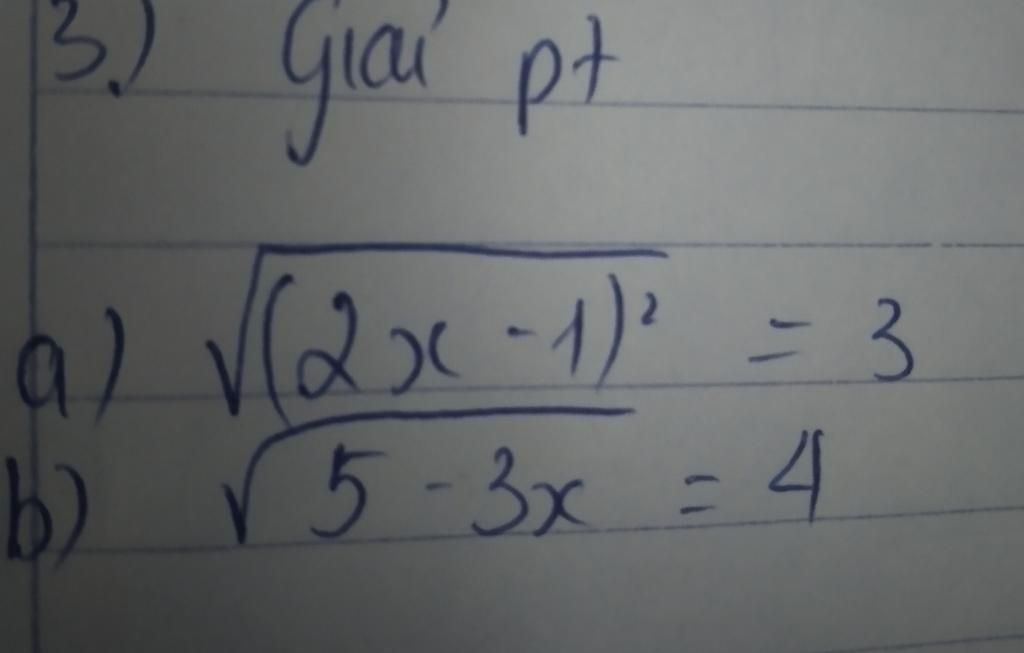 3.) Giải pt
a) √(2x - 1)² = 3
b) √5 - 3x = 4